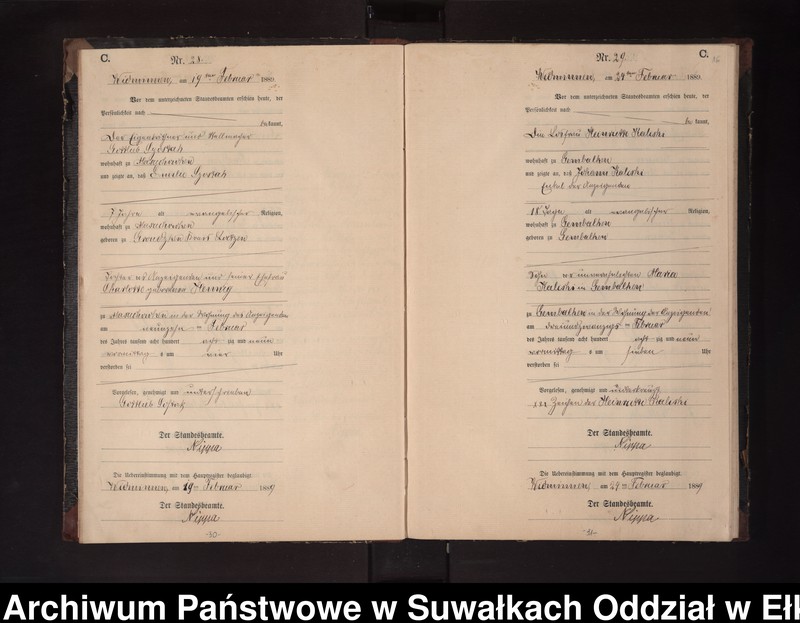 C.
Nr. 28.
Widminnen, am 19ten Februar 1889.
Vor dem unterzeichneten Standesbeamten erschien heute, der
Persönlichkeit nach
bekannt,
Der Eigenkäthner und
Gottlieb
wohnhaft zu
und zeigte an, daß Emilie
7 Jahre alt evangelischer Religion,
wohnhaft zu
geboren zu
Tochter des Anzeigenden und seiner Ehefrau
Charlotte geborenen
zu in der Wohnung des Anzeigenden
am neunzehn ten Februar
des Jahres tausend acht hundert acht zig und neun
vormittag s um vier Uhr
verstorben sei
Vorgelesen, genehmigt und unterschrieben
Gottlieb
Der Standesbeamte.
Nippa
Die Uebereinstimmung mit dem Hauptregister beglaubigt.
Widminnen, am 19ten Februar 1889
Der Standesbeamte.
Nippa
-30-
Nr. 29
C.
Widminnen, am Februar 1889.
Vor dem unterzeichneten Standesbeamten erschien heute, der
Persönlichkeit nach
bekannt,
Die Losfrau Henriette Kaleski
wohnhaft zu Gembalken
und zeigte an, daß Johann Kaleski
Enkel der Anzeigenden
18 Tage alt evangelischer Religion,
wohnhaft zu Gembalken
geboren zu Gembalken
Sohn der unverehelichten Maria
Kaleski in Gembalken
zu Gembalken in der Wohnung der Anzeigenden
am dreiundzwanzigs ten Februar
des Jahres tausend acht hundert acht zig und neun
vormittag s um sieben Uhr
verstorben sei
Vorgelesen, genehmigt und unterkreuzt
xxx Zeichen der Henriette Kaleski
Der Standesbeamte.
Nippa
Die Uebereinstimmung mit dem Hauptregister beglaubigt.
Widminnen, am Februar 1889
Der Standesbeamte.
Nippa
-31-
Archiwum Państwowe w Suwałkach Oddział w Ełk